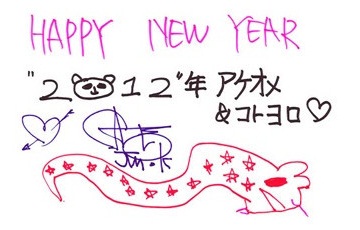 HAPPY NEW YEAR
"2012"年 アケオメ
&コトヨロ♡